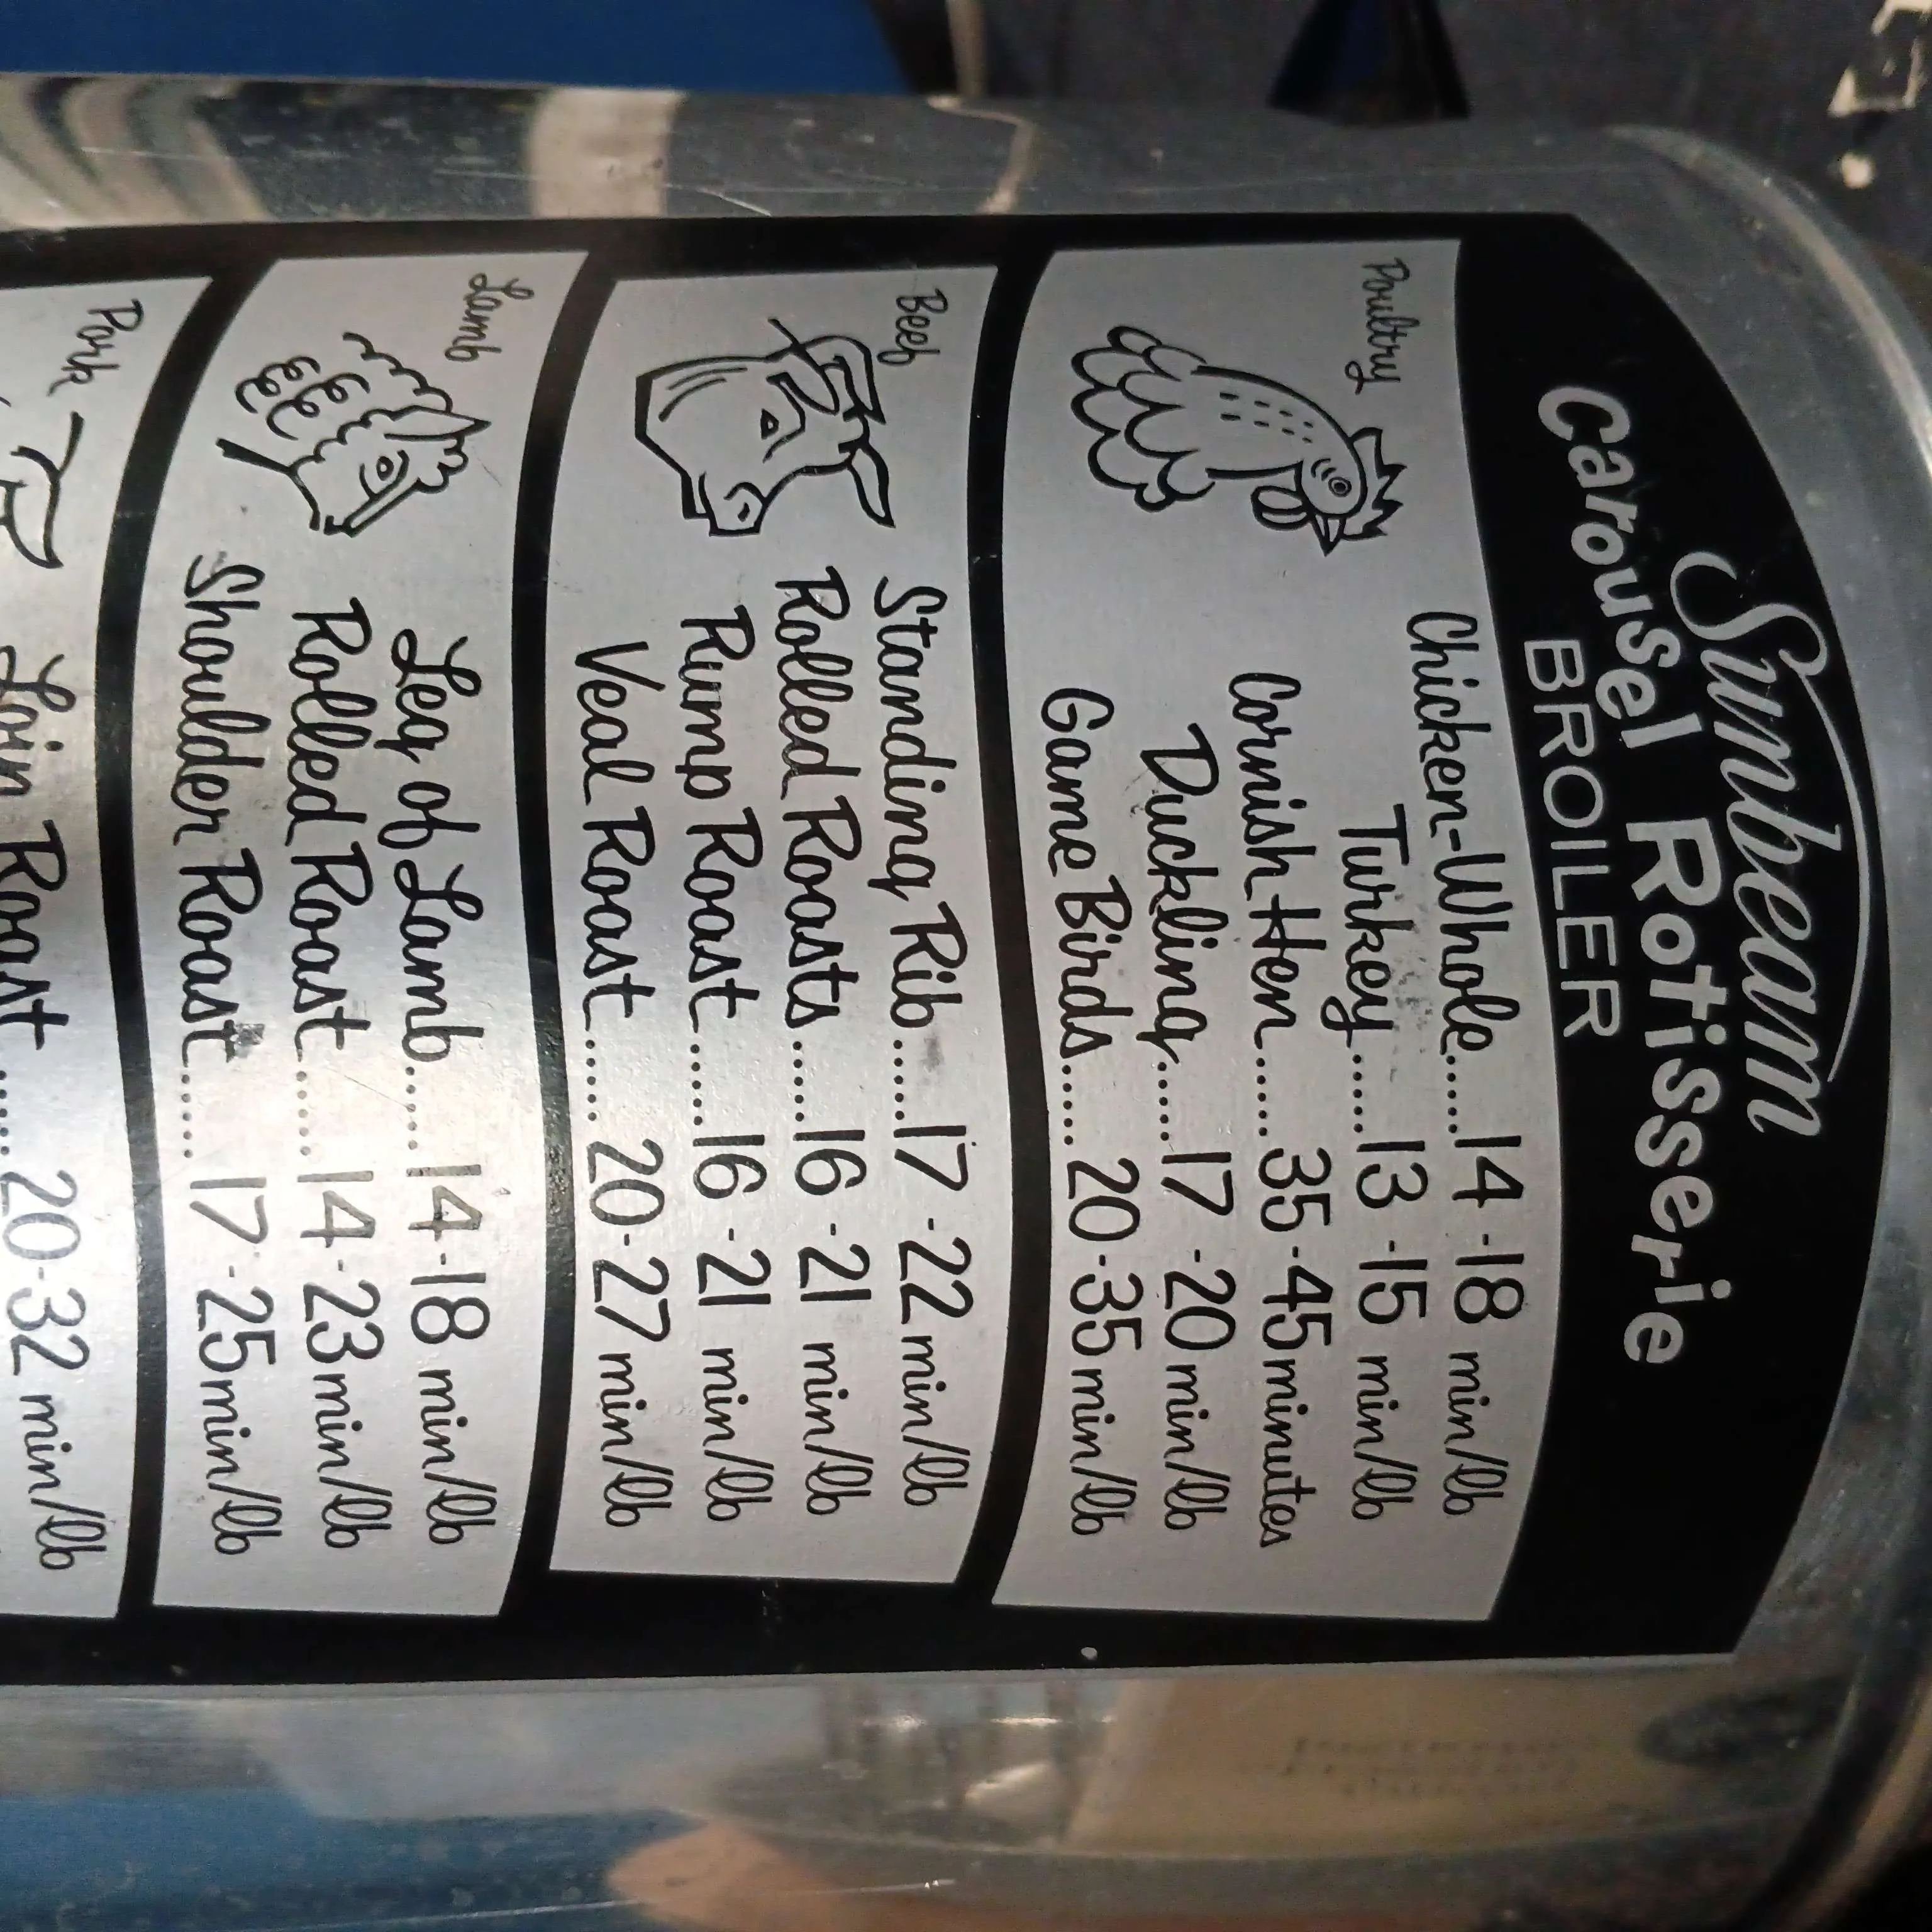 Sunbeam
Carousel Rotisserie
BROILER
Poultry
Chicken-Whole.....14-18 min/lb
Turkey.....13-15 min/lb
Cornish Hen.....35-45 minutes
Duckling.....17-20 min/lb
Game Birds.....20-35 min/lb
Beef
Standing Rib.....17-22 min/lb
Rolled Roasts.....16-21 min/lb
Rump Roast.....16-21 min/lb
Veal Roast.....20-27 min/lb
Lamb
Leg of Lamb.....14-18 min/lb
Rolled Roast.....14-23 min/lb
Shoulder Roast.....17-25 min/lb
Pork
Loin Roast.....20-32 min/lb